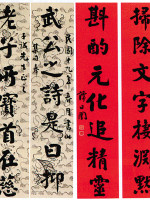 掃除文字棲淵默
斟酌元化追精靈
武公之詩是曰抑
老子所寶首在慈